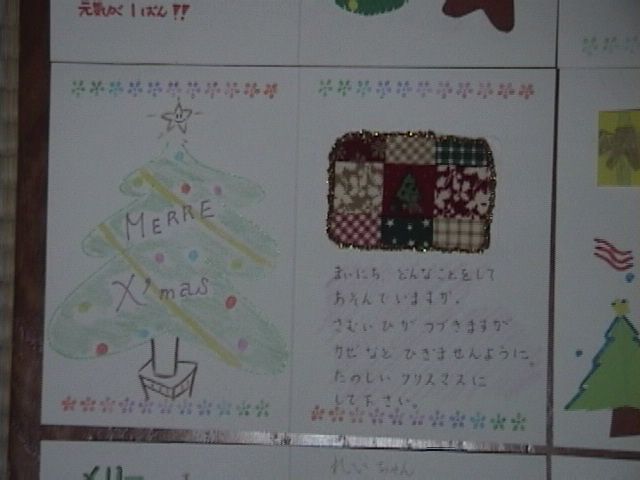 元気が1ばん!!
MERRE
X'mas
まいにち どんなことをして
あそんでいますか。
さむい ひが つづきますが
カゼなど ひきませんように。
たのしい クリスマスに
して下さい。
メリー
れいちゃん